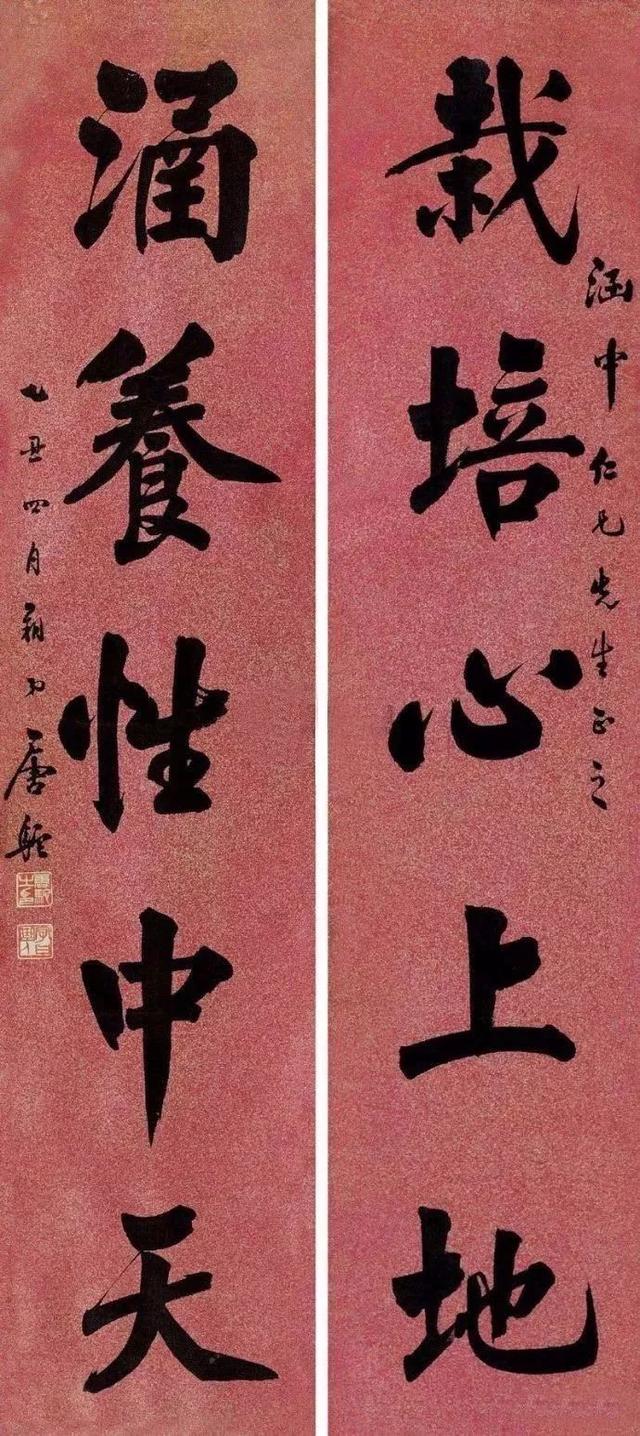 涵中仁兄先生正之
栽培心上地
涵養性中天
乙丑四月 唐駝